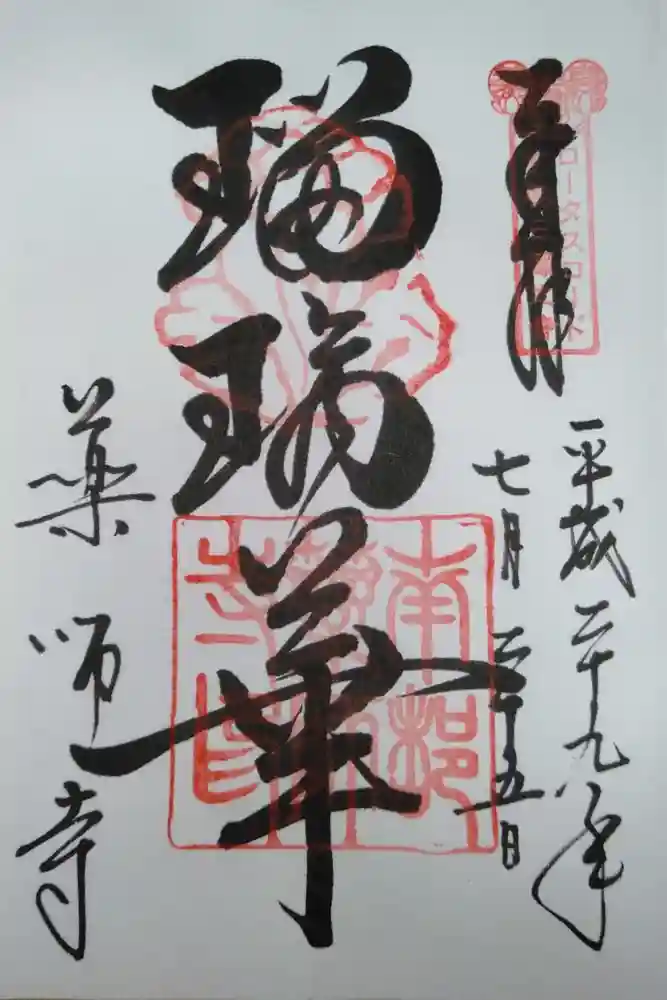 ロータスロード
平成二十九年
七月二十五日
瑠璃華
南都
薬師
寺印
薬師寺